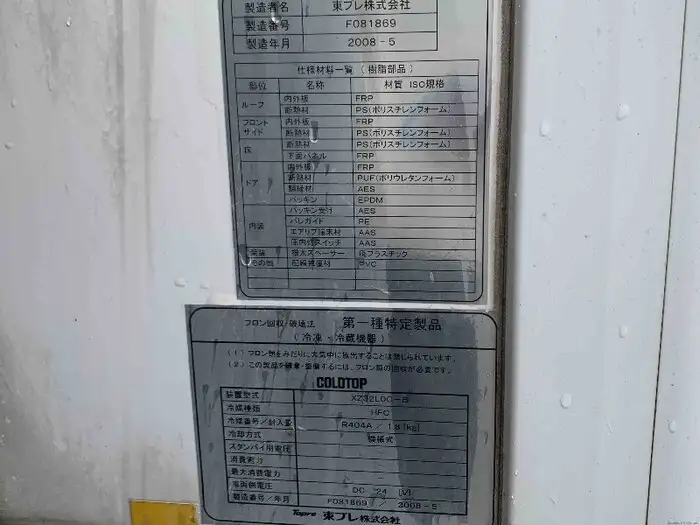 製造者名 東プレ株式会社
製造番号 F081869
製造年月 2008-5
仕様材料一覧(樹脂部品)
部位 名称 材質 ISO規格
ルーフ 内外板 FRP
断熱材 PS(ポリスチレンフォーム)
フロント サイド 内外板 FRP
断熱材 PS(ポリスチレンフォーム)
床 断熱材 PS(ポリスチレンフォーム)
下面パネル FRP
ドア 内外板 FRP
断熱材 PUF(ポリウレタンフォーム)
AES
パッキン EPDM
内装 パッキン受け AES
PE
AAS
庫内灯スイッチ AAS
根太スペーサー 廃プラスチック
その他 PVC
フロン回収・破壊法 第一種特定製品
(冷凍・冷蔵機器)
(1)フロン類をみだりに大気中に放出することは禁じられています。
(2)この製品を廃棄・整備するには、フロン類の回収が必要です。
COLDTOP
装置型式
冷媒種類 HFC
冷媒番号/封入量 R404A / 1.8(kg)
冷却方式 機械式
スタンバイ用電圧
消費電力 —
最大消費電力 —
車両側電圧 DC 24 (V)
製造番号/年月 F081869 / 2008-5
Topre 東プレ株式会社